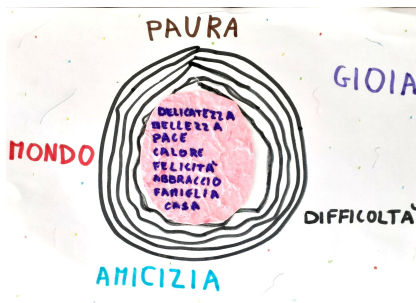 PAURA
GIOIA
DELICATEZZA
BELLEZZA
PACE
CALORE
FELICITÀ
ABBRACCIO
FAMIGLIA
CASA
MONDO
DIFFICOLTÀ
AMICIZIA